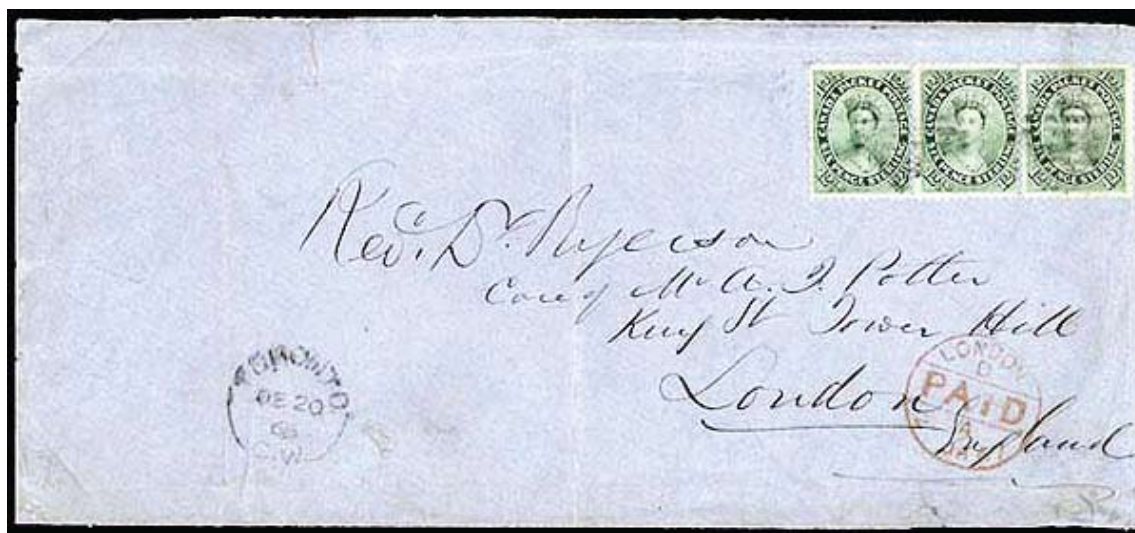 CANADA PACKET POSTAGE
SIX PENCE STERLING
12½
CANADA PACKET POSTAGE
SIX PENCE STERLING
12½
CANADA PACKET POSTAGE
SIX PENCE STERLING
12½
Revd. Dr. Ryerson
Care of Mr A. J. Potter
King St Tower Hill
London
England
TORONTO
DE 20
C.W.
LONDON
PAID